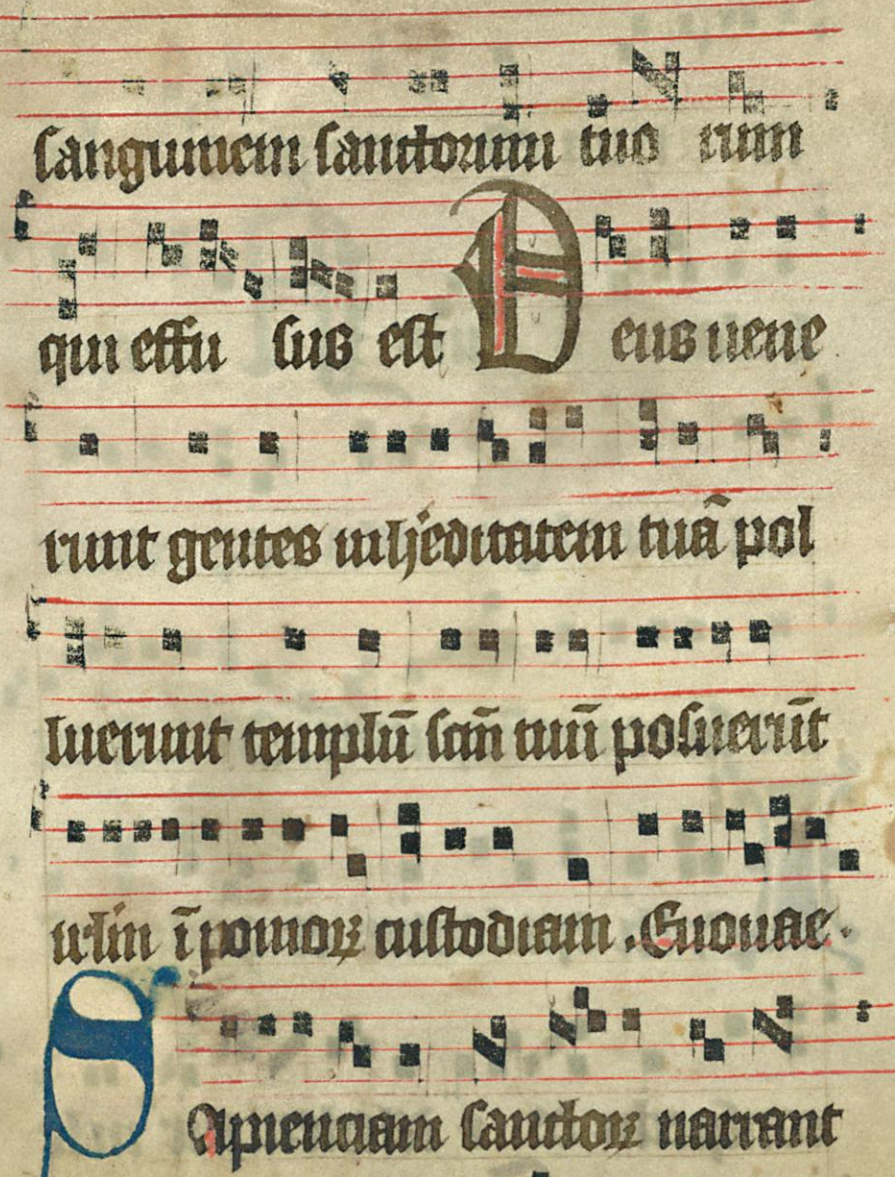 sanguinem sanctorum tuo rum
qui effu sus est Deus uene
runt gentes in heditatem tuā pol
luerunt templū scm̄ tuū posuerūt
irlm̄ ī pomoꝝ custodiam . Euouae .
Sapienciam sanctoꝝ narrant